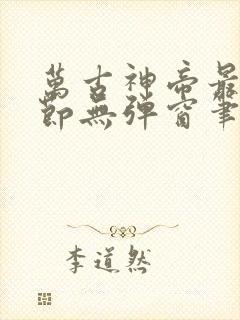 萬古神帝最
節無彈窗筆
李道然